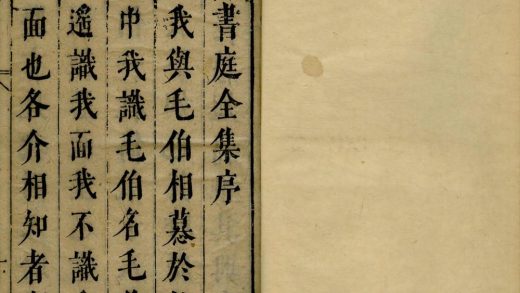 書庭全集序
我與毛伯相慕於
中我識毛伯名毛
遥識我面我不識
面也各介相知者